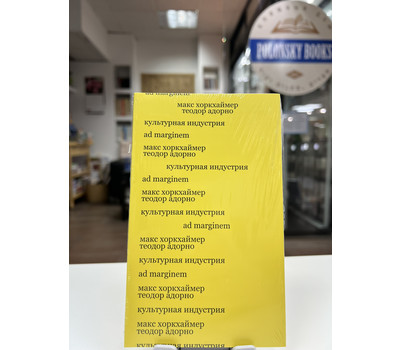 POLONSKY BOOKS
ad marginem
макс хоркхаймер
теодор адорно
культурная индустрия
ad marginem
макс хоркхаймер
теодор адорно
культурная индустрия
ad marginem
макс хоркхаймер
теодор адорно
культурная индустрия
ad marginem
макс хоркхаймер
теодор адорно
культурная индустрия
ad marginem
макс хоркхаймер
теодор адорно
культурная индустрия
макс хоркхаймер
теодор адорно
культурная индустрия